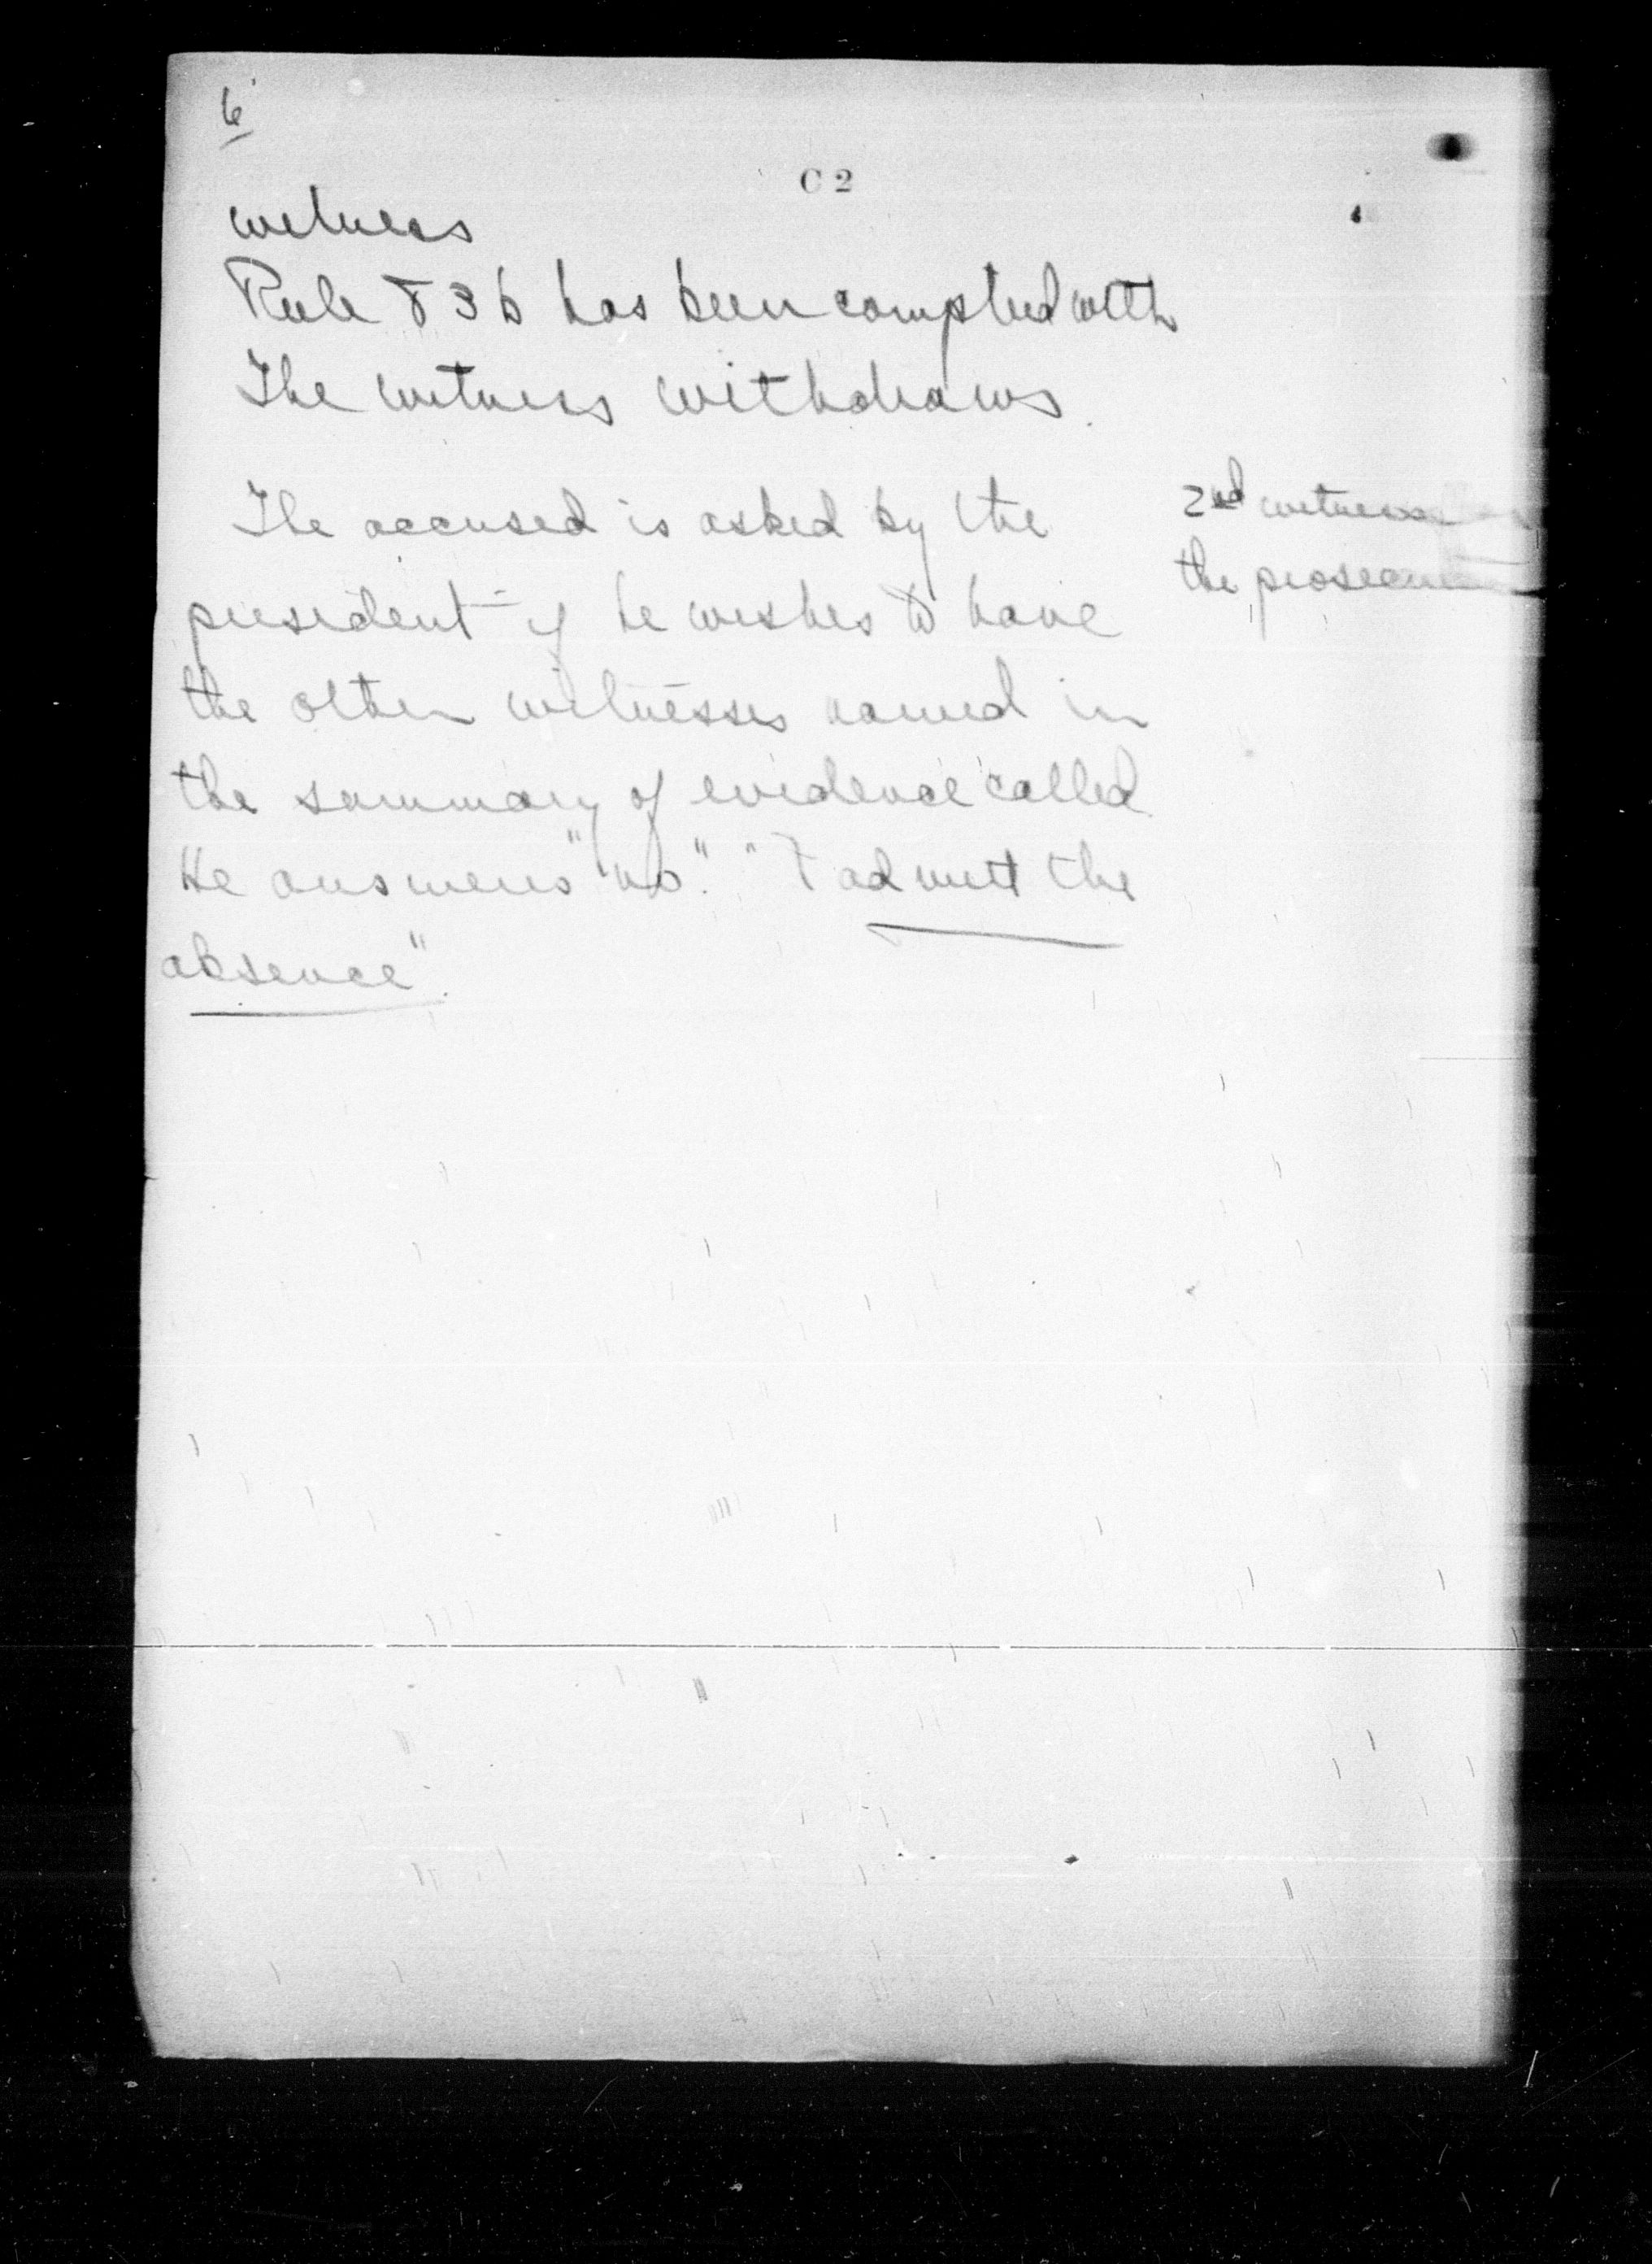 6
C 2
witness
Rule 83 b has been complied with
The witness withdraws.
The accused is asked by the
president if he wishes to have
the other witnesses named in
the summary of evidence called
He answers "no." "I admit the
absence".
2nd witness
the prosecution